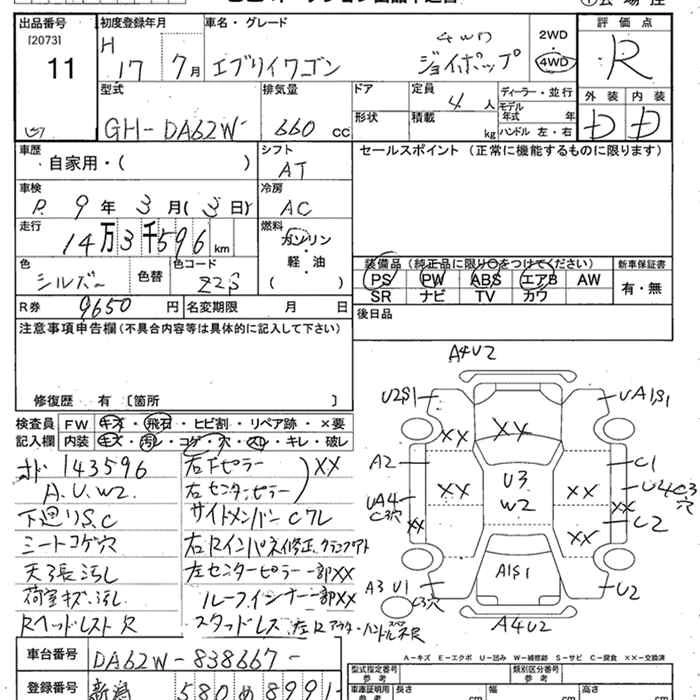 出品番号 初度登録年月 車名・グレード 評価点
[2073] H 4WD 2WD
11 17 7月 エブリイワゴン ジョイポップ 4WD R
型式 排気量 ドア 定員 4 人 ディーラー・並行 外装 内装
GH-DA62W 660 cc 形状 積載 kg モデル年式 年 ハンドル 左・右 D D
車歴 シフト セールスポイント(正常に機能するものに限ります)
自家用・( ) AT
車検 冷房
R. 9 年 3 月(3日) AC
走行 燃料
14万3千596 km ガソリン
軽・油
( )
装備品(純正品に限り○をつけてください) 新車保証書
PS PW ABS エアB AW 有・無
SR ナビ TV カワ
色 シルバー 色替 色コード Z2S
後日品
R券 9650 円 名変期限 月 日
注意事項申告欄(不具合内容等は具体的に記入して下さい)
修復歴 有 〔箇所 〕
検査員 FW キズ・飛石・ヒビ割・リペア跡・×要
記入欄 内装 キズ・汚レ・コゲ・穴・スレ・キレ・破レ
143596 右Fピラー XX
A.U.W2. 右センターピラー
下廻りS.C サイトメンバーCワレ
シートコゲ穴 右Rインパネ修正
天張汚し 左センターピラー一部XX
荷室キズ.汚し ルーフインナー一部XX
Rヘッドレスト欠 スタッドレス
A4U2
U2S1 UA1S1
XX XX
A2 C1
U3
W2
UA4 C3穴 XX XX U4C3穴
XX XX U2
XX
A1S1
A3 U1 U2
C3穴
A4U2
A-キズ E-エクボ U-凹み W-補修跡 S-サビ C-腐食 XX-交換済
車台番号 DA62W-838667-
登録番号 新潟 580 め 8991
型式指定番号 類別区分番号
車庫証明用 長さ cm 幅 cm 高さ cm